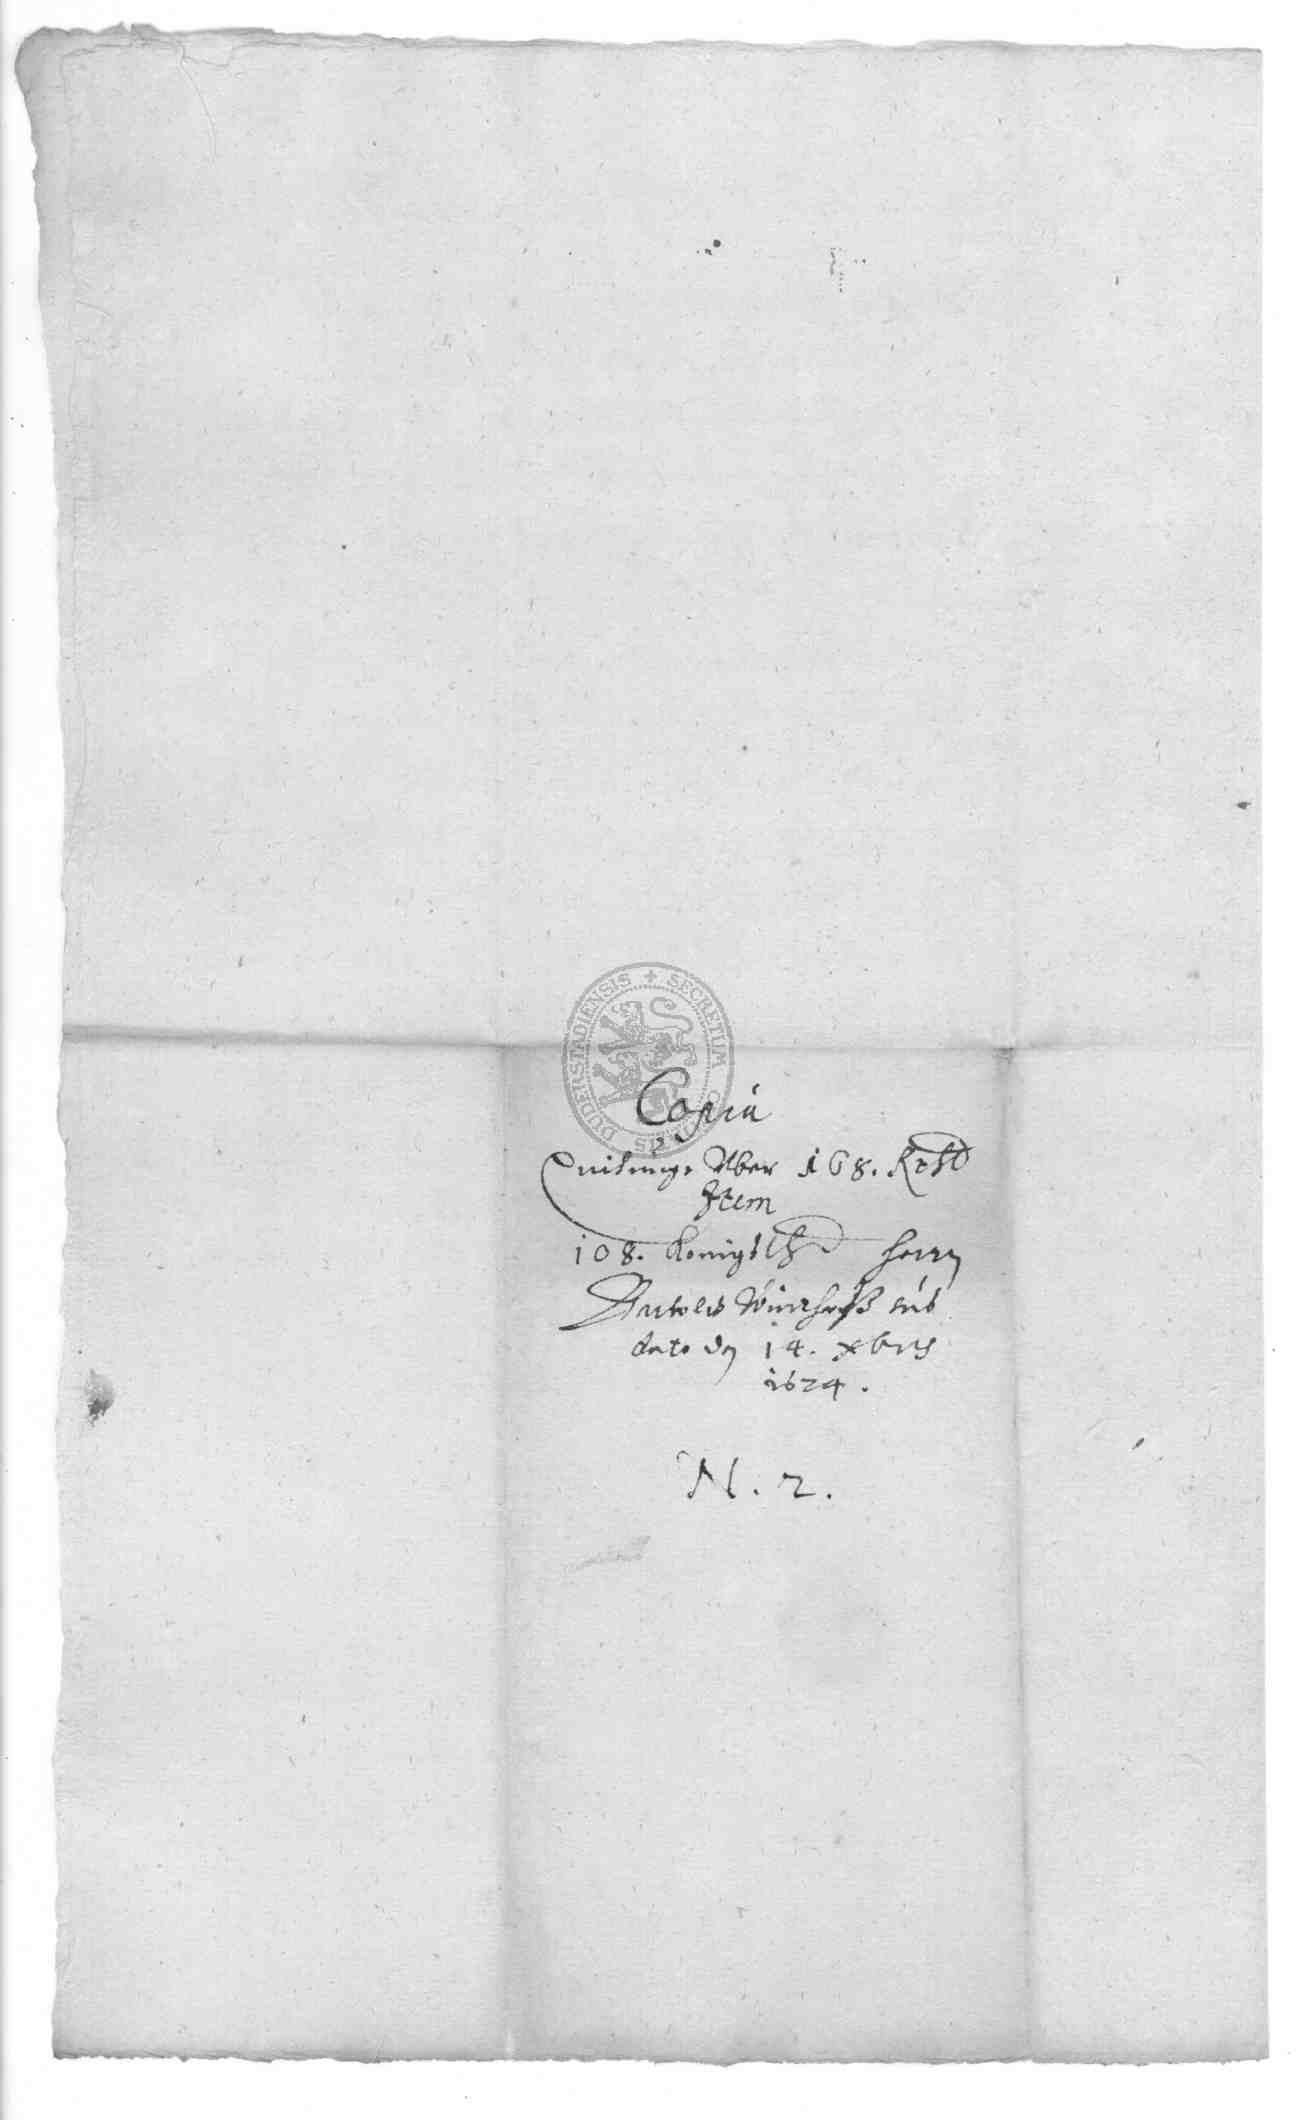 SECRETUM CIVITATIS DUDERSTADIENSIS
Copia
Quitunge Vber 168. Rthlr
Item
108. Konigsthlr herrn
sub
dato den 14. xbris
1624.
N. 2.